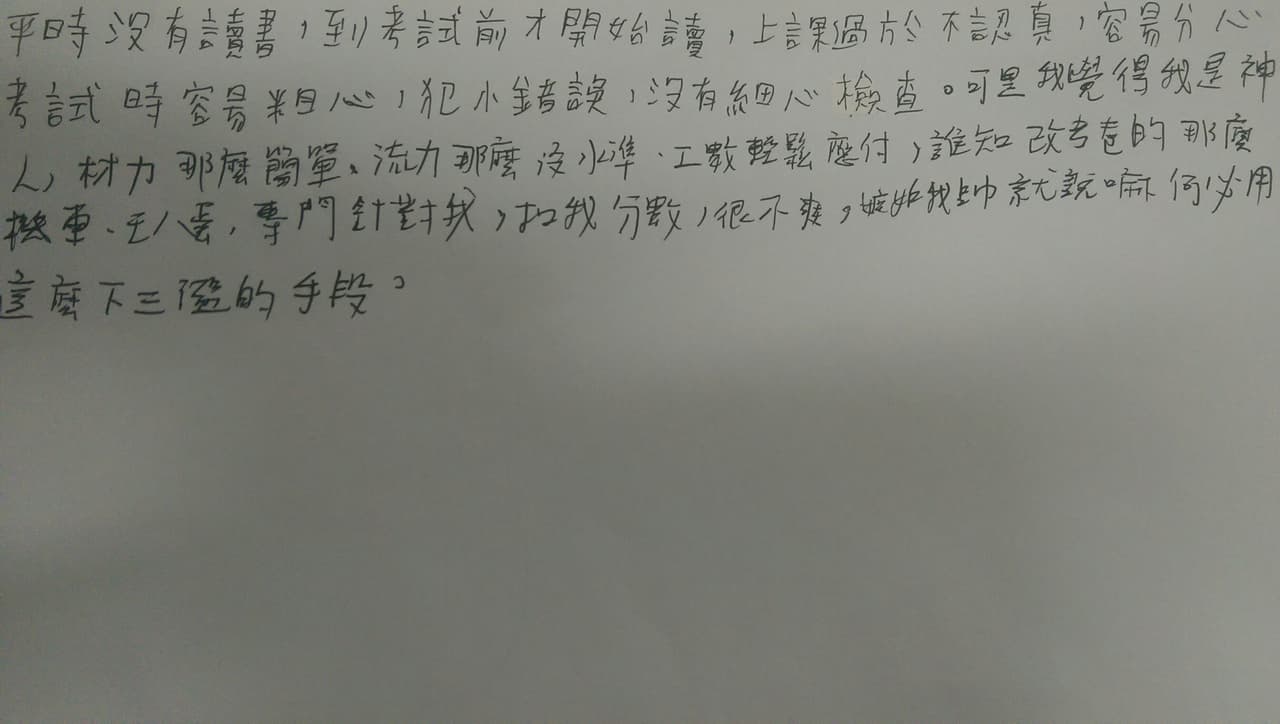 平時沒有讀書，到考試前才開始讀，上課過於不認真，容易分心
考試時容易粗心，犯小錯誤，沒有細心檢查。可是我覺得我是神
人，材力那麼簡單、流力那麼沒水準、工數輕鬆應付，誰知改考卷的那麼
機車、王八蛋，專門針對我，扣我分數，很不爽，嫉妒我帥就說嘛何必用
這麼下三濫的手段。